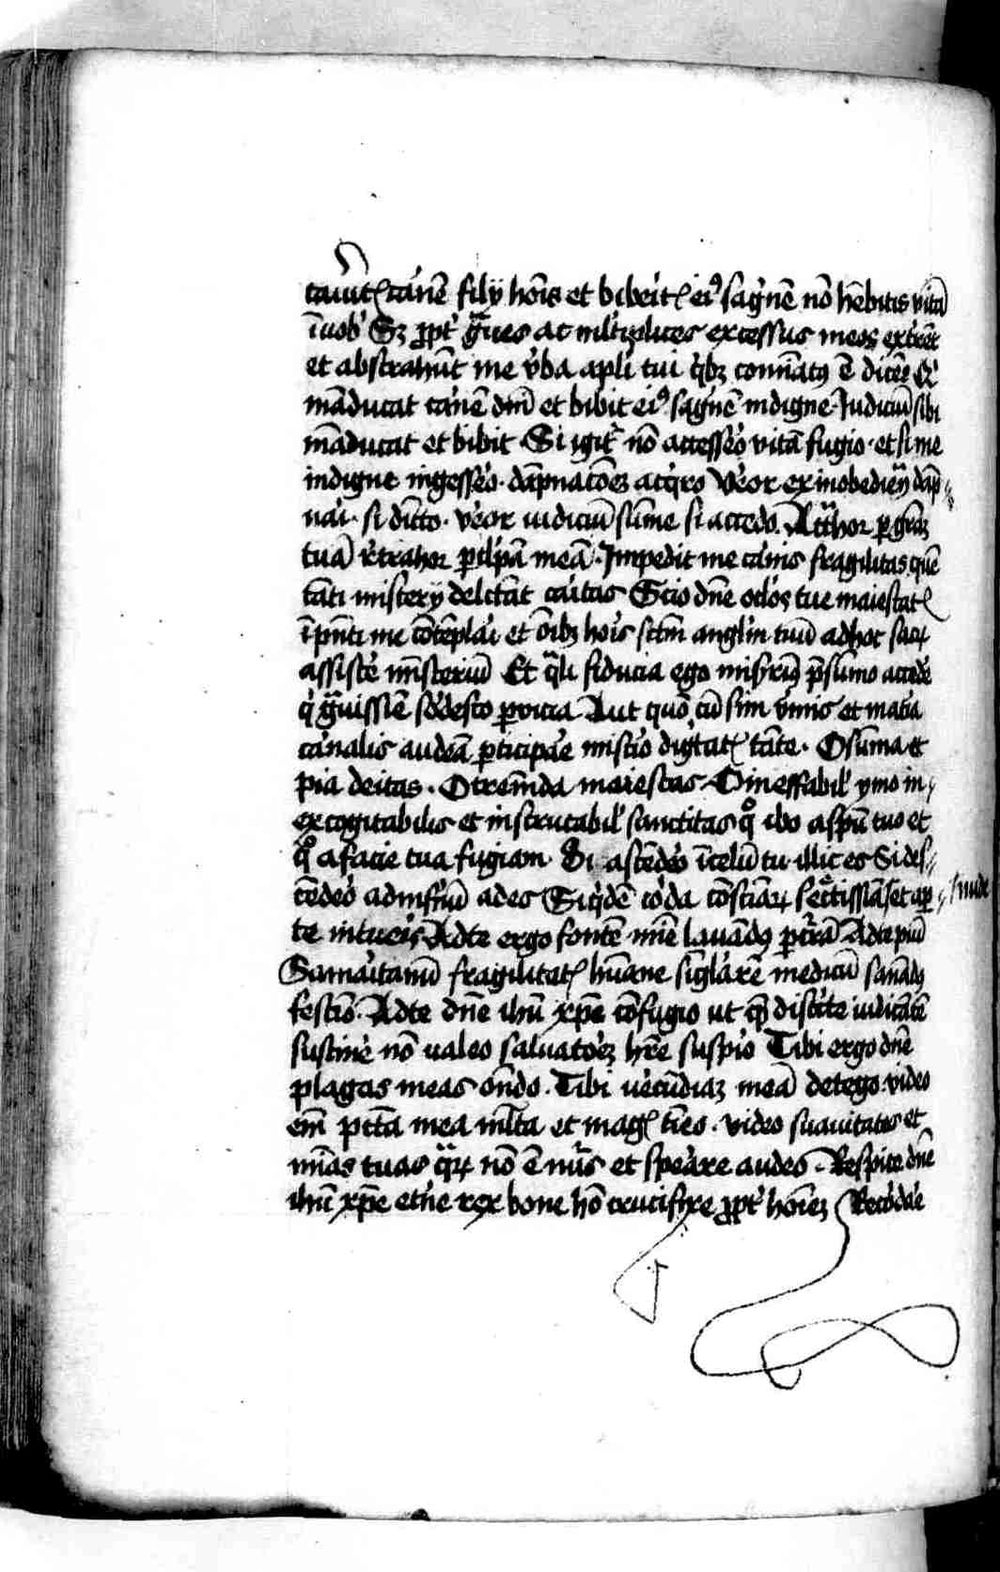 cauitꝭ carnē filij hoīs et biberitꝭ eiꝰ sāgnē nō hēbitis vitā
ī uob' Sꝫ ꝓpt' g̃ues ac ml'tiplices excessus meos
et abstrahūt me v̄ba apl'i tui q̄bꝫ comīatꝰ ē dicēs Q'
māducat carnē dnī et bibit eiꝰ sāgnē indigne Iudiciū sibi
māducat et bibit Si igit' nō accesso vitā fugio et si me
indigne ingesso dāpnacōeꝫ acq̄ro Veor ex inobediē dāp-
nai si dicto veor iudiciū sūme si accedo Att̃hor ꝑ grāꝫ
tuā r̄trahor ꝑ cl'pā meā Impedit me cānis fragilitas quē
tāti misterij delc̄tat caitas Scio dn̄e oc'los tue maiestatꝭ
ī pn̄ti me cōtēplai et oībꝫ hoīs scīm angl'm tuū ad hoc sacꝝ
assistē mīsteriū Et q̄li fiducia ego misrimꝰ p̄sumo accedē
q' g̃uissīe sōdesco pctā Aut quō cū sim v̄mis et matia
cānalis audeā ꝑticipae misc'io digītatꝭ tāte O sūma et
pia deitas O tremēda maiestas O ineffabil' ymo in-
excogitabilis et inscrutabil' sanctitas qͦ ibo a spū tuo et
qͦ a facie tua fugiam Si ascēdeo ī celū tu illic es Si des-
cēdeo ad inf'nū ades Siq'dē coda cōsciāꝝ sec'tissīa et ap- nude
te intueis Ad te ergo fontē mīe lauādꝰ pct̄a Ad te piū
Samaitanū fragilitatꝭ hūane siglarē medicū sanādꝰ
festīo Ad te dn̄e ihū xp̄e cōfugio ut q̄ discūte iudicātē
sustinē nō ualeo saluatoēꝫ hr̄e suspio Tibi ergo dn̄e
plagas meas on̄do Tibi uecūdiaꝫ meā detego video
em̄ pctā mea ml'ta et magꝭ tīeo video suauitates et
mīas tuas q̃ꝝ nō ē nūs et speare audeo Respice dn̄e
ihū xp̄e et'ne rex bone hō crucifixe ꝓpt' hoīeꝫ Recodae